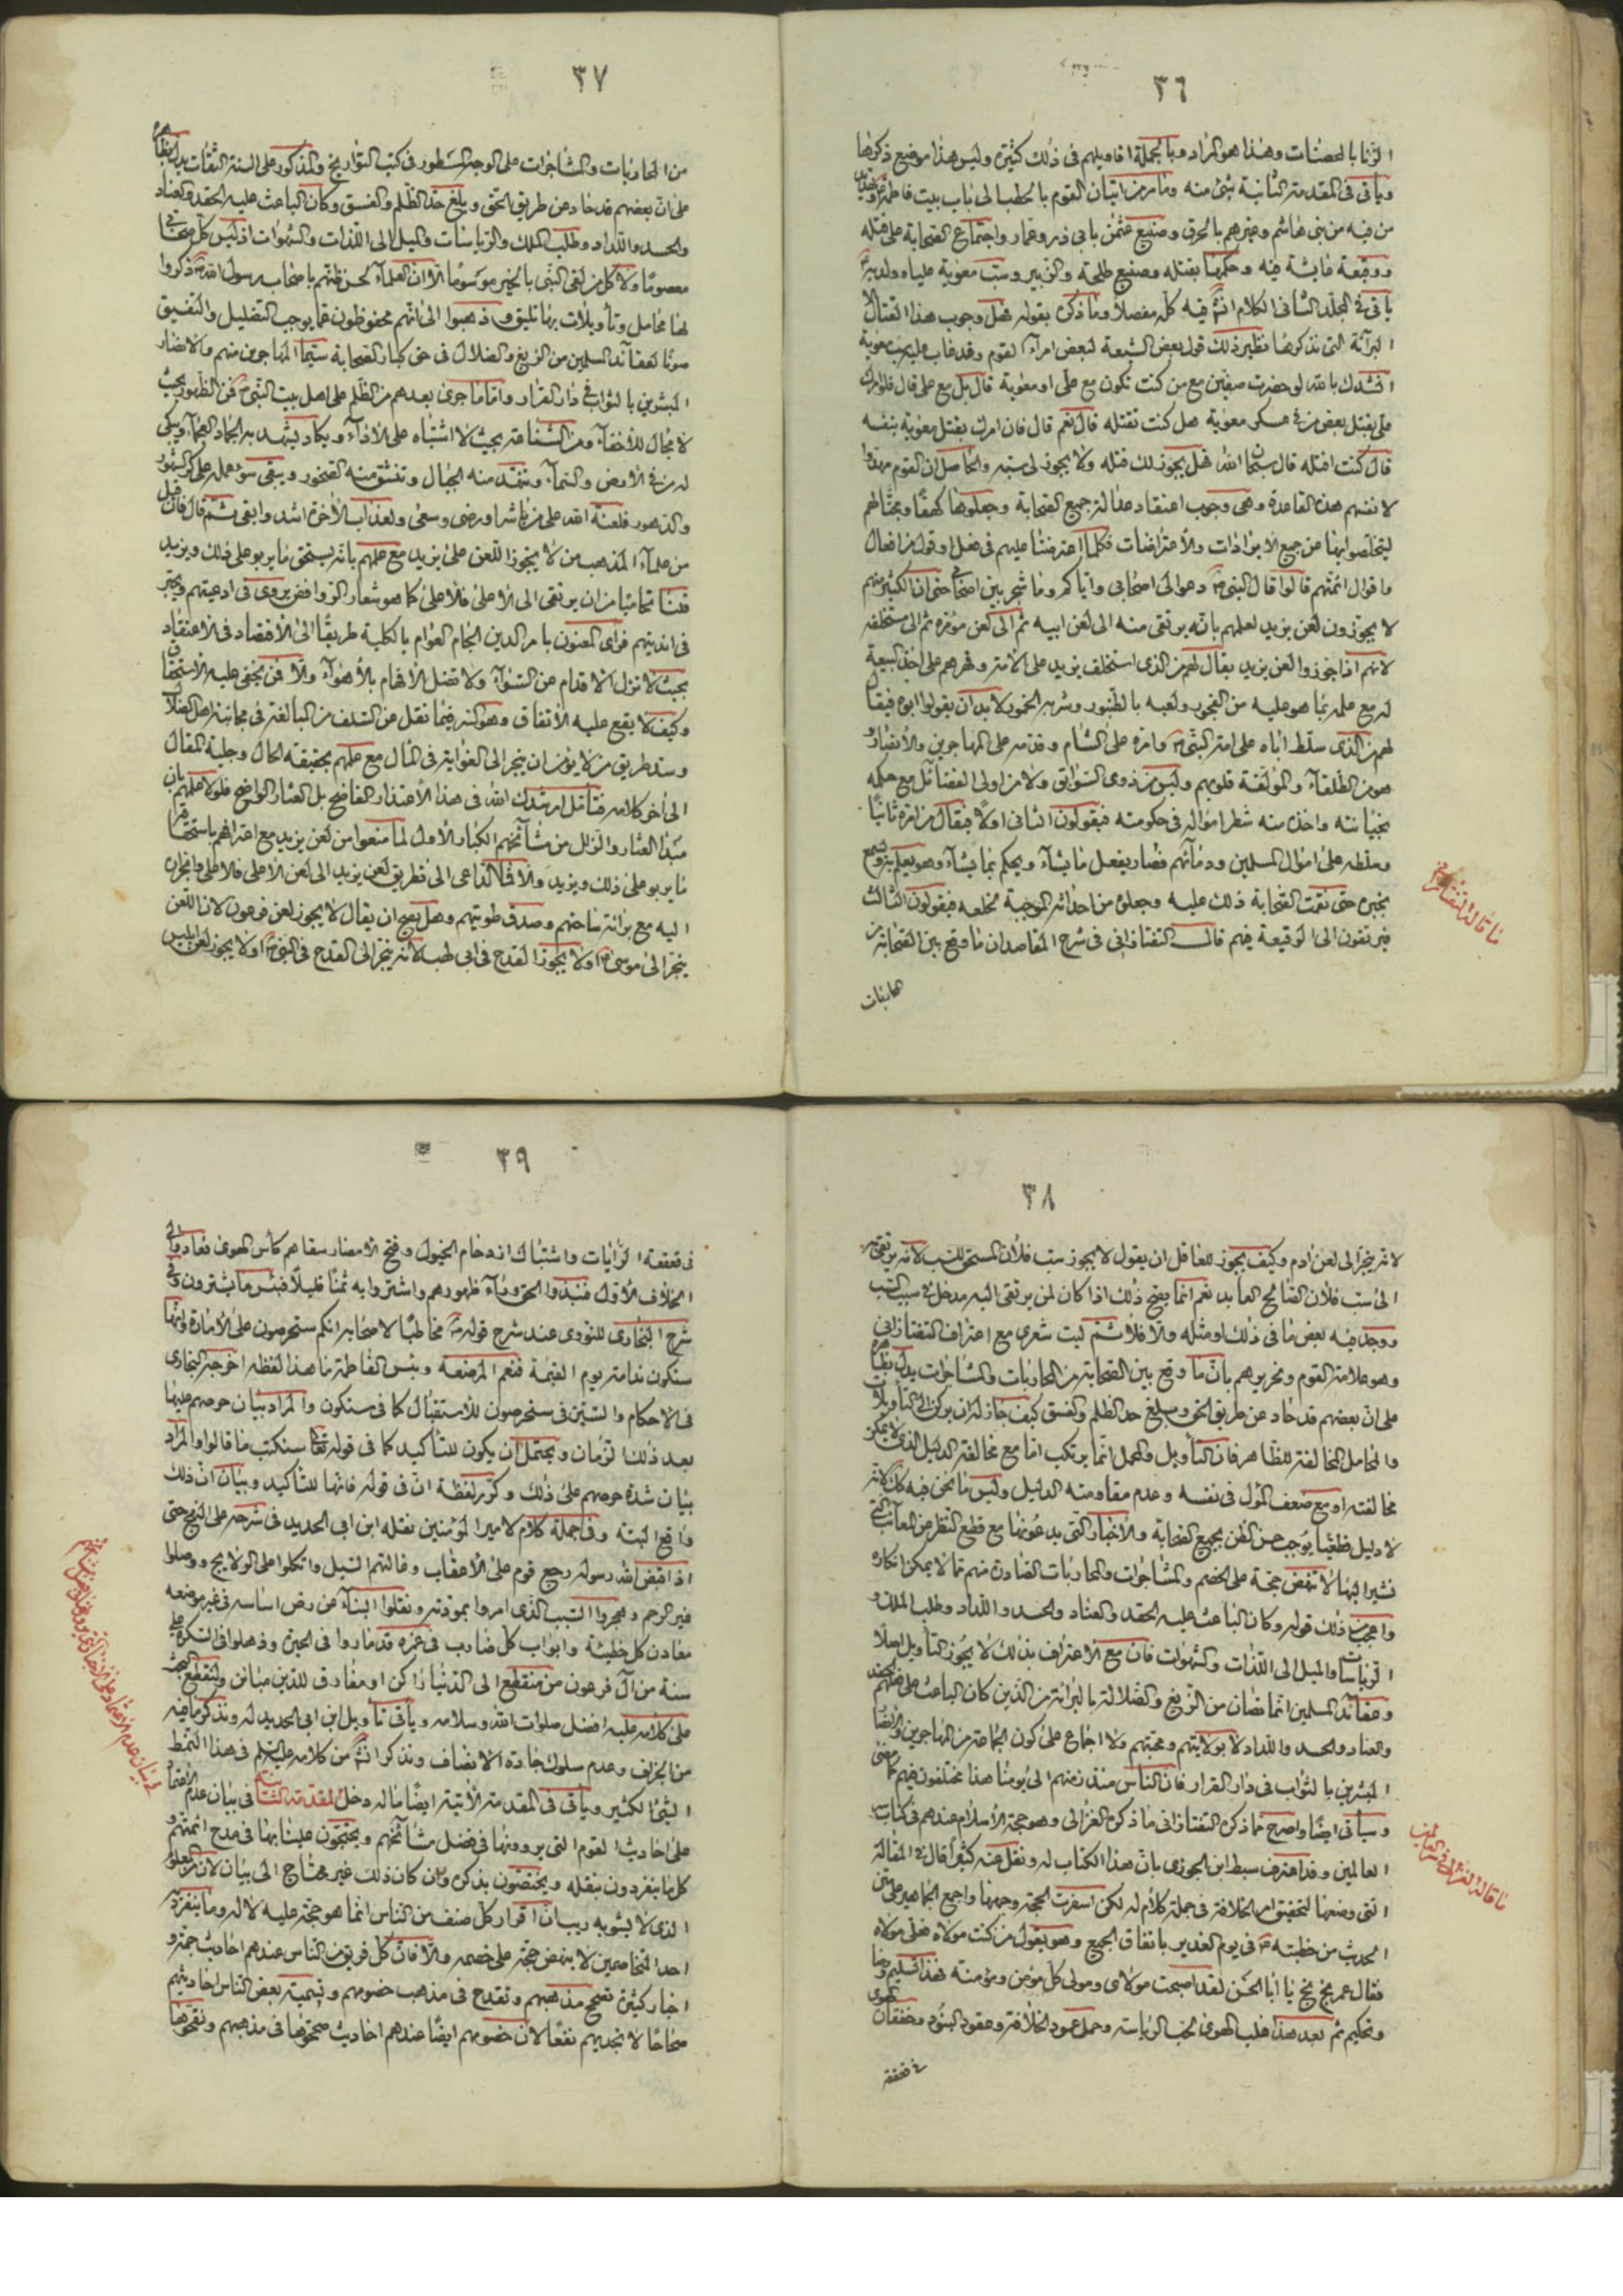 ٣٦
الزنا بالمحصنات وهذا هو المراد وبالجملة اقاويلهم فى ذلك كثيرة وليس هذا موضع ذكرها
وياتى فى المقدمة الثانية شئ منه وما مر من اتيان القوم بالحطب الى باب بيت فاطمة
من فيه من بنى هاشم وغيرهم بالحرق وصنيع عثمن بابى ذر وعمار واجتماع الصحابة على قتله
ووقيعة عايشة فيه وحكمها بقتله وصنيع طلحة والزبير وسب معوية عليا ولديه
ياتى فى المجلد الثانى الكلام فيه كله مفصلا وما ذكره بقوله فهل وجوب هذا القتال الا
البرائة التى نذكرها نظير ذلك قول بعض الشيعة لبعض امراء القوم وقد عاب عليه حرب معوية
انشدك بالله لو حضرت صفين مع من كنت تكون مع على او معوية قال بل مع على قال فلو امرك
على بقتل بعض من فى عسكر معوية هل كنت تقتله قال نعم قال فان امرك بقتل معوية بنفسه
قال كنت اقتله قال سبحان الله فهل يجوز لك قتله ولا يجوز لى سبه والحاصل ان القوم مهدوا
لانفسهم هذه القاعدة وهى وجوب اعتقاد عدالة جميع الصحابة وجعلوها كهفا ومجنا لهم
ليتخلصوا بها عن جميع الايرادات والاعتراضات فكلما اعترضنا عليهم فى فعل او قول من افعال
واقوال ائمتهم قالوا قال النبى دعوا لى اصحابى واياكم وما شجر بين اصحابى حتى ان الكثير منهم
لا يجوزون لعن يزيد لعلمهم بانه يرتقى منه الى لعن ابيه ثم الى لعن مؤمره ثم الى مستخلفه
لانهم اذا جوزوا لعن يزيد يقال لهم من الذى استخلف يزيد على الامة وقهرهم على اخذ البيعة
له مع علمه بما هو عليه من الفجور ولعبه بالطنبور وشربه الخمور لا بد ان يقولوا ابوه فيقال
لهم من الذى سلط اباه على امة النبى وامره على الشام وقدمه على المهاجرين والانصار و
هو من الطلقاء والمؤلفة قلوبهم وليس من ذوى السوابق ولا من اولى الفضائل مع حكمه
بخيانته واخذه منه شطر امواله فى حكومته فيقولون الثانى اولا فيقال من امره ثانيا
وسلطه على اموال المسلمين ودمائهم فصار يفعل ما يشاء ويحكم بما يشاء وهو يعلم
بخبره حتى نقمت الصحابة ذلك عليه وجعلوه من احداثه الموجبة لخلعه فيقولون الثالث
فيرتقون الى الوقيعة فيهم قال التفتازانى فى شرح المقاصد ان ما وقع بين الصحابة من
ما قاله التفتازانى
٣٧
من المحاربات والمشاجرات على الوجه المسطور فى كتب التواريخ والمذكور على السنة الثقات يدل بظاهره
على ان بعضهم قد حاد عن طريق الحق وبلغ حد الظلم والفسق وكان الباعث عليه الحقد والعناد
والحسد واللداد وطلب الملك والرياسات والميل الى اللذات والشهوات اذ ليس كل صحابى
معصوما ولا كل من لقى النبى بالخير موسوما الا ان العلماء لحسن ظنهم باصحاب رسول الله ذكروا
لها محامل وتأويلات بها تليق وذهبوا الى انهم محفوظون عما يوجب التضليل والتفسيق
صونا لعقائد المسلمين من الزيغ والضلال فى حق كبار الصحابة سيما المهاجرين منهم والانصار
المبشرين بالثواب فى دار القرار واما ما جرى بعدهم من الظلم على اهل بيت النبى فمن الظهور بحيث
لا مجال للاخفاء ومن الشناعة بحيث لا اشتباه على الآراء ويكاد يشهد به الجماد العجماء ويبكى
له من فى الارض والسماء وتنهد منه الجبال وتنشق منه الصخور ويبقى سوء عمله على كر الشهور
والدهور فلعنة الله على من باشر او رضى وسعى ولعذاب الآخرة اشد وابقى ثم قال فان قيل
من علماء المذهب من لا يجوز اللعن على يزيد مع علمهم بانه يستحق ما يربو على ذلك ويزيد
قلنا تحاميا من ان يرتقى الى الاعلى فالاعلى كما هو شعار الروافض يروى فى ادعيتهم ويجرى
فى انديتهم فراى المعتنون بامر الدين الجام العوام بالكلية طريقا الى الاقتصاد فى الاعتقاد
بحيث لا تزل الاقدام عن السواء ولا تضل الافهام بالاهواء والا فمن يخفى عليه الاستحقاق
وكيف لا يقع عليه الاتفاق وهو السر فيما نقل عن السلف من المبالغة فى مجانبة اهل الضلال
وسد طريق من لا يؤمن ان ينجر الى الغواية فى المآل مع علمهم بحقيقة الحال وجلية المقال
الى آخر كلامه فتأمل ارشدك الله فى هذا الاعتذار الفاضح بل العثار الواضح فلولا علمهم بان
مبدأ العثار والزلل من مشائخهم الكبار الاول لما منعوا من لعن يزيد مع اعترافهم باستحقاقه
ما يربو على ذلك ويزيد والا فما الداعى الى تطريق لعن يزيد الى لعن الاعلى فالاعلى وانجراره
اليه مع برائة ساحتهم وصدق طويتهم وهل يصح ان يقال لا يجوز لعن فرعون لان اللعن
ينجر الى موسى او لا يجوز القدح فى ابى لهب لانه ينجر الى القدح فى النبى او لا يجوز لعن ابليس
٣٨
لانه ينجر الى لعن ادم وكيف يجوز للعاقل ان يقول لا يجوز سب فلان المستحق للسب لانه يرتقى
الى سب فلان الصالح العابد نعم انما يصح ذلك اذا كان لمن يرتقى اليه مدخل فى سبب السب
ووجد فيه بعض ما فى ذلك او مثله والا فلا ثم ليت شعرى مع اعتراف التفتازانى
وهو علامة القوم ونحريرهم بان ما وقع بين الصحابة من المحاربات والمشاجرات يدل بظاهره
على ان بعضهم قد حاد عن طريق الحق وبلغ حد الظلم والفسق كيف جاز له ان يركن الى التأويلات
والمحامل المخالفة للظاهر فان التأويل والحمل انما يرتكب اما مع مخالفة الدليل الذى لا يمكن
مخالفته او مع ضعف المؤل فى نفسه وعدم مقاومته الدليل وليس ما نحن فيه كك لانه
لا دليل قطعيا يوجب حسن الظن بجميع الصحابة والاخبار التى يدعونها مع قطع النظر عن المعائب التى
نشير اليها لا تنهض حجة على الخصم والمشاجرات والمحاربات الصادرة منهم مما لا يمكن انكاره
واعجب من ذلك قوله وكان الباعث عليه الحقد والعناد والحسد واللداد وطلب الملك و
الرياسات والميل الى اللذات والشهوات فان مع الاعتراف بذلك لا يجوز التأويل اصلا
وعقائد المسلمين انما تصان من الزيغ والضلالة بالبرائة من الذين كان الباعث على فعلهم الحقد
والعناد والحسد واللداد لا بولايتهم ومحبتهم ولا اجماع على كون الجماعة من المهاجرين والانصار
المبشرين بالثواب فى دار القرار فان الناس منذ زمنهم الى يومنا هذا مختلفون فيهم كما مضى
وسيأتى ايضا واصرح مما ذكره التفتازانى ما ذكره الغزالى وهو حجة الاسلام عندهم فى كتاب سر
العالمين وقد اعترف سبط ابن الجوزى بان هذا الكتاب له ونقل عنه كثيرا قال فى المقالة
التى وضعها لتحقيق امر الخلافة فى جملة كلام له لكن اسفرت الحجة وجهها واجمع الجماهير على متن
الحديث من خطبته فى يوم الغدير باتفاق الجميع وهو يقول من كنت مولاه فعلى مولاه
فقال عمر بخ بخ يا ابا الحسن لقد اصبحت مولاى ومولى كل مؤمن ومؤمنة فهذا تسليم ورضا
وتحكيم ثم بعد هذا غلب الهوى لحب الرياسة وحمل عمود الخلافة وعقود البنود وخفقان الهوى
فى قعقعة
ما قاله الغزالى فى سر العالمين
٣٩
فى قعقعة الرايات واشتباك ازدحام الخيول وفتح الامصار سقاهم كأس الهوى فعادوا الى
الخلاف الاول فنبذوا الحق وراء ظهورهم واشتروا به ثمنا قليلا فبئس ما يشترون وفى
شرح البخارى للنووى عند شرح قوله مخاطبا لاصحابه انكم ستحرصون على الامارة وانها
ستكون ندامة يوم القيمة فنعم المرضعة وبئس الفاطمة ما هذا لفظه اخرجه البخارى
فى الاحكام والسين فى ستحرصون للاستقبال كما فى ستكون والمراد بيان حرصهم عليها
بعد ذلك الزمان ويحتمل ان يكون للتأكيد كما فى قوله تعالى سنكتب ما قالوا والمراد
بيان شدة حرصهم على ذلك وكرر لفظة ان فى قوله فانها للتأكيد وبيان ان ذلك
واقع البتة وفى جملة كلام لامير المؤمنين نقله ابن ابى الحديد فى شرحه على النهج حتى
اذا قبض الله رسوله رجع قوم على الاعقاب وغالتهم السبل واتكلوا على الولايج ووصلوا
غير الرحم وهجروا السبب الذى امروا بمودته ونقلوا البناء عن رص اساسه فى غير موضعه
معادن كل خطيئة وابواب كل ضارب فى غمرة قد ماروا فى الحيرة وذهلوا فى السكرة على
سنة من آل فرعون من منقطع الى الدنيا راكن او مفارق للدين مباين
على كلامه عليه افضل صلوات الله وسلامه وياتى تأويل ابن ابى الحديد له ونذكر ما فيه
من الجزاف وعدم سلوك جادة الانصاف ونذكر من كلامه عليه السلم فى هذا النمط
الشئ الكثير وياتى فى المقدمة الآتية ايضا ما له دخل المقدمة الثانية فى بيان عدم الاعتماد
على احاديث القوم التى يروونها فى فضل مشائخهم ويحتجون علينا بها فى مدح ائمتهم و
كلما ينفردون بنقله ويختصون بذكره وان كان ذلك غير محتاج الى بيان لان من المعلوم
الذى لا يشوبه ريب ان اقرار كل صنف من الناس انما هو حجة عليه لا له وما ينفرد به
احد المتخاصمين لا ينهض حجة على خصمه والا فان كل فريق من الناس عندهم احاديث جمة و
اخبار كثيرة تصحح مذهبهم وتقدح فى مذهب خصومهم وتسمية بعض الناس احاديثهم
صحاحا لا تجديهم نفعا لان خصومهم ايضا عندهم احاديث صححوها فى مذهبهم ونقحوها